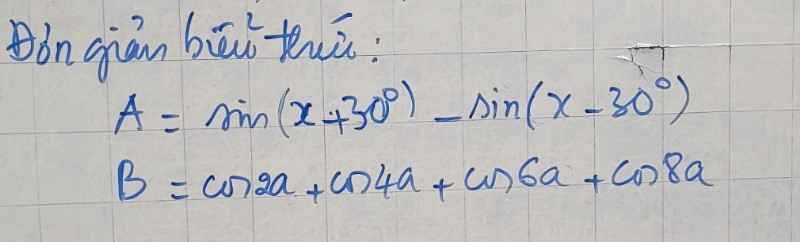 Đơn giản biểu thức:
A = sin(x+30°) - sin(x-30°)
B = cos2a + cos4a + cos6a + cos8a